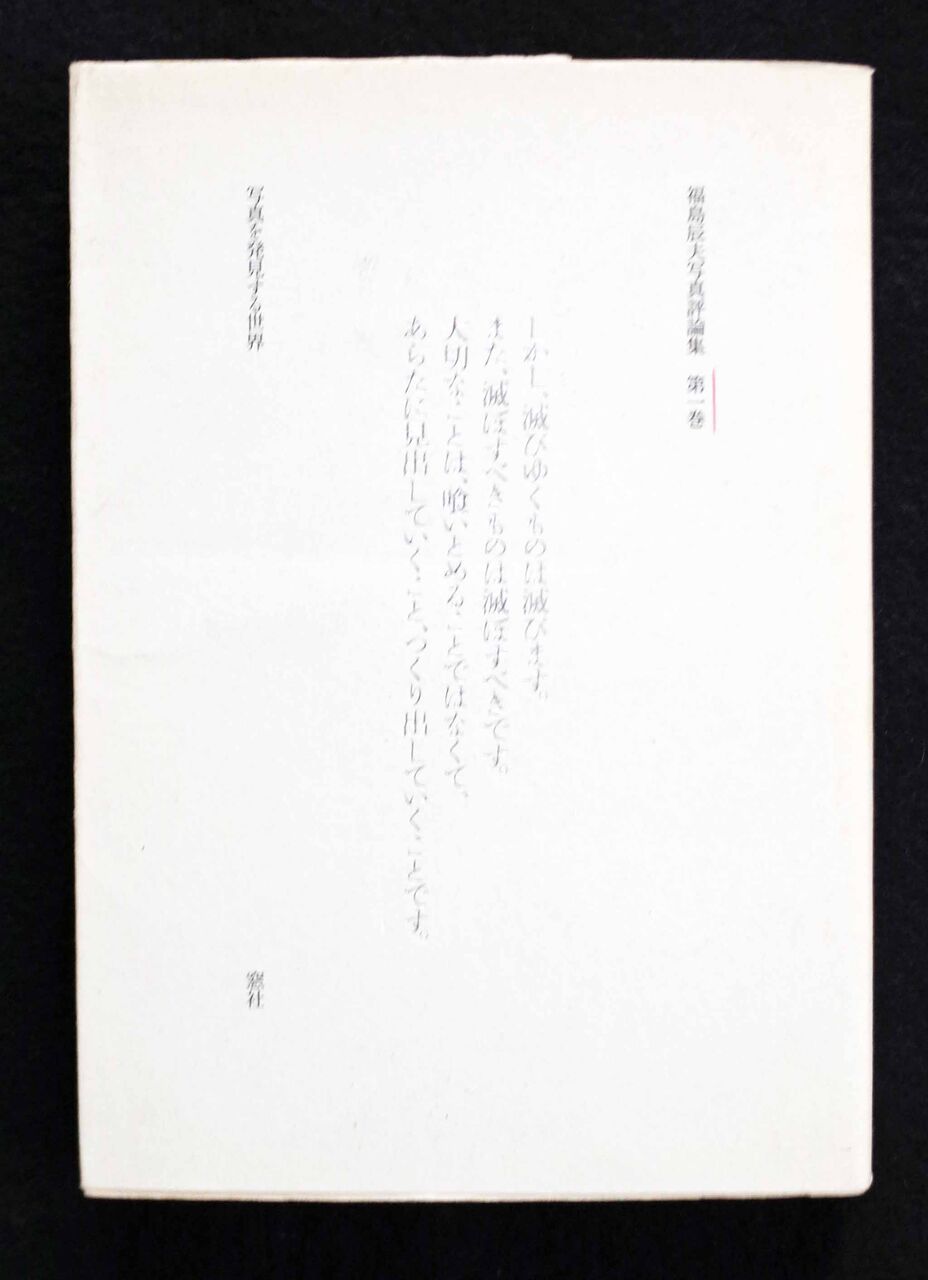 福島辰夫写真評論集 第一巻
しかし、滅びゆくものは滅びます。
また、滅ぼすべきものは滅ぼすべきです。
大切なことは、喰いとめることではなくて、
あらたに見出していくこと、つくり出していくことです。
写真を発見する世界
窓社